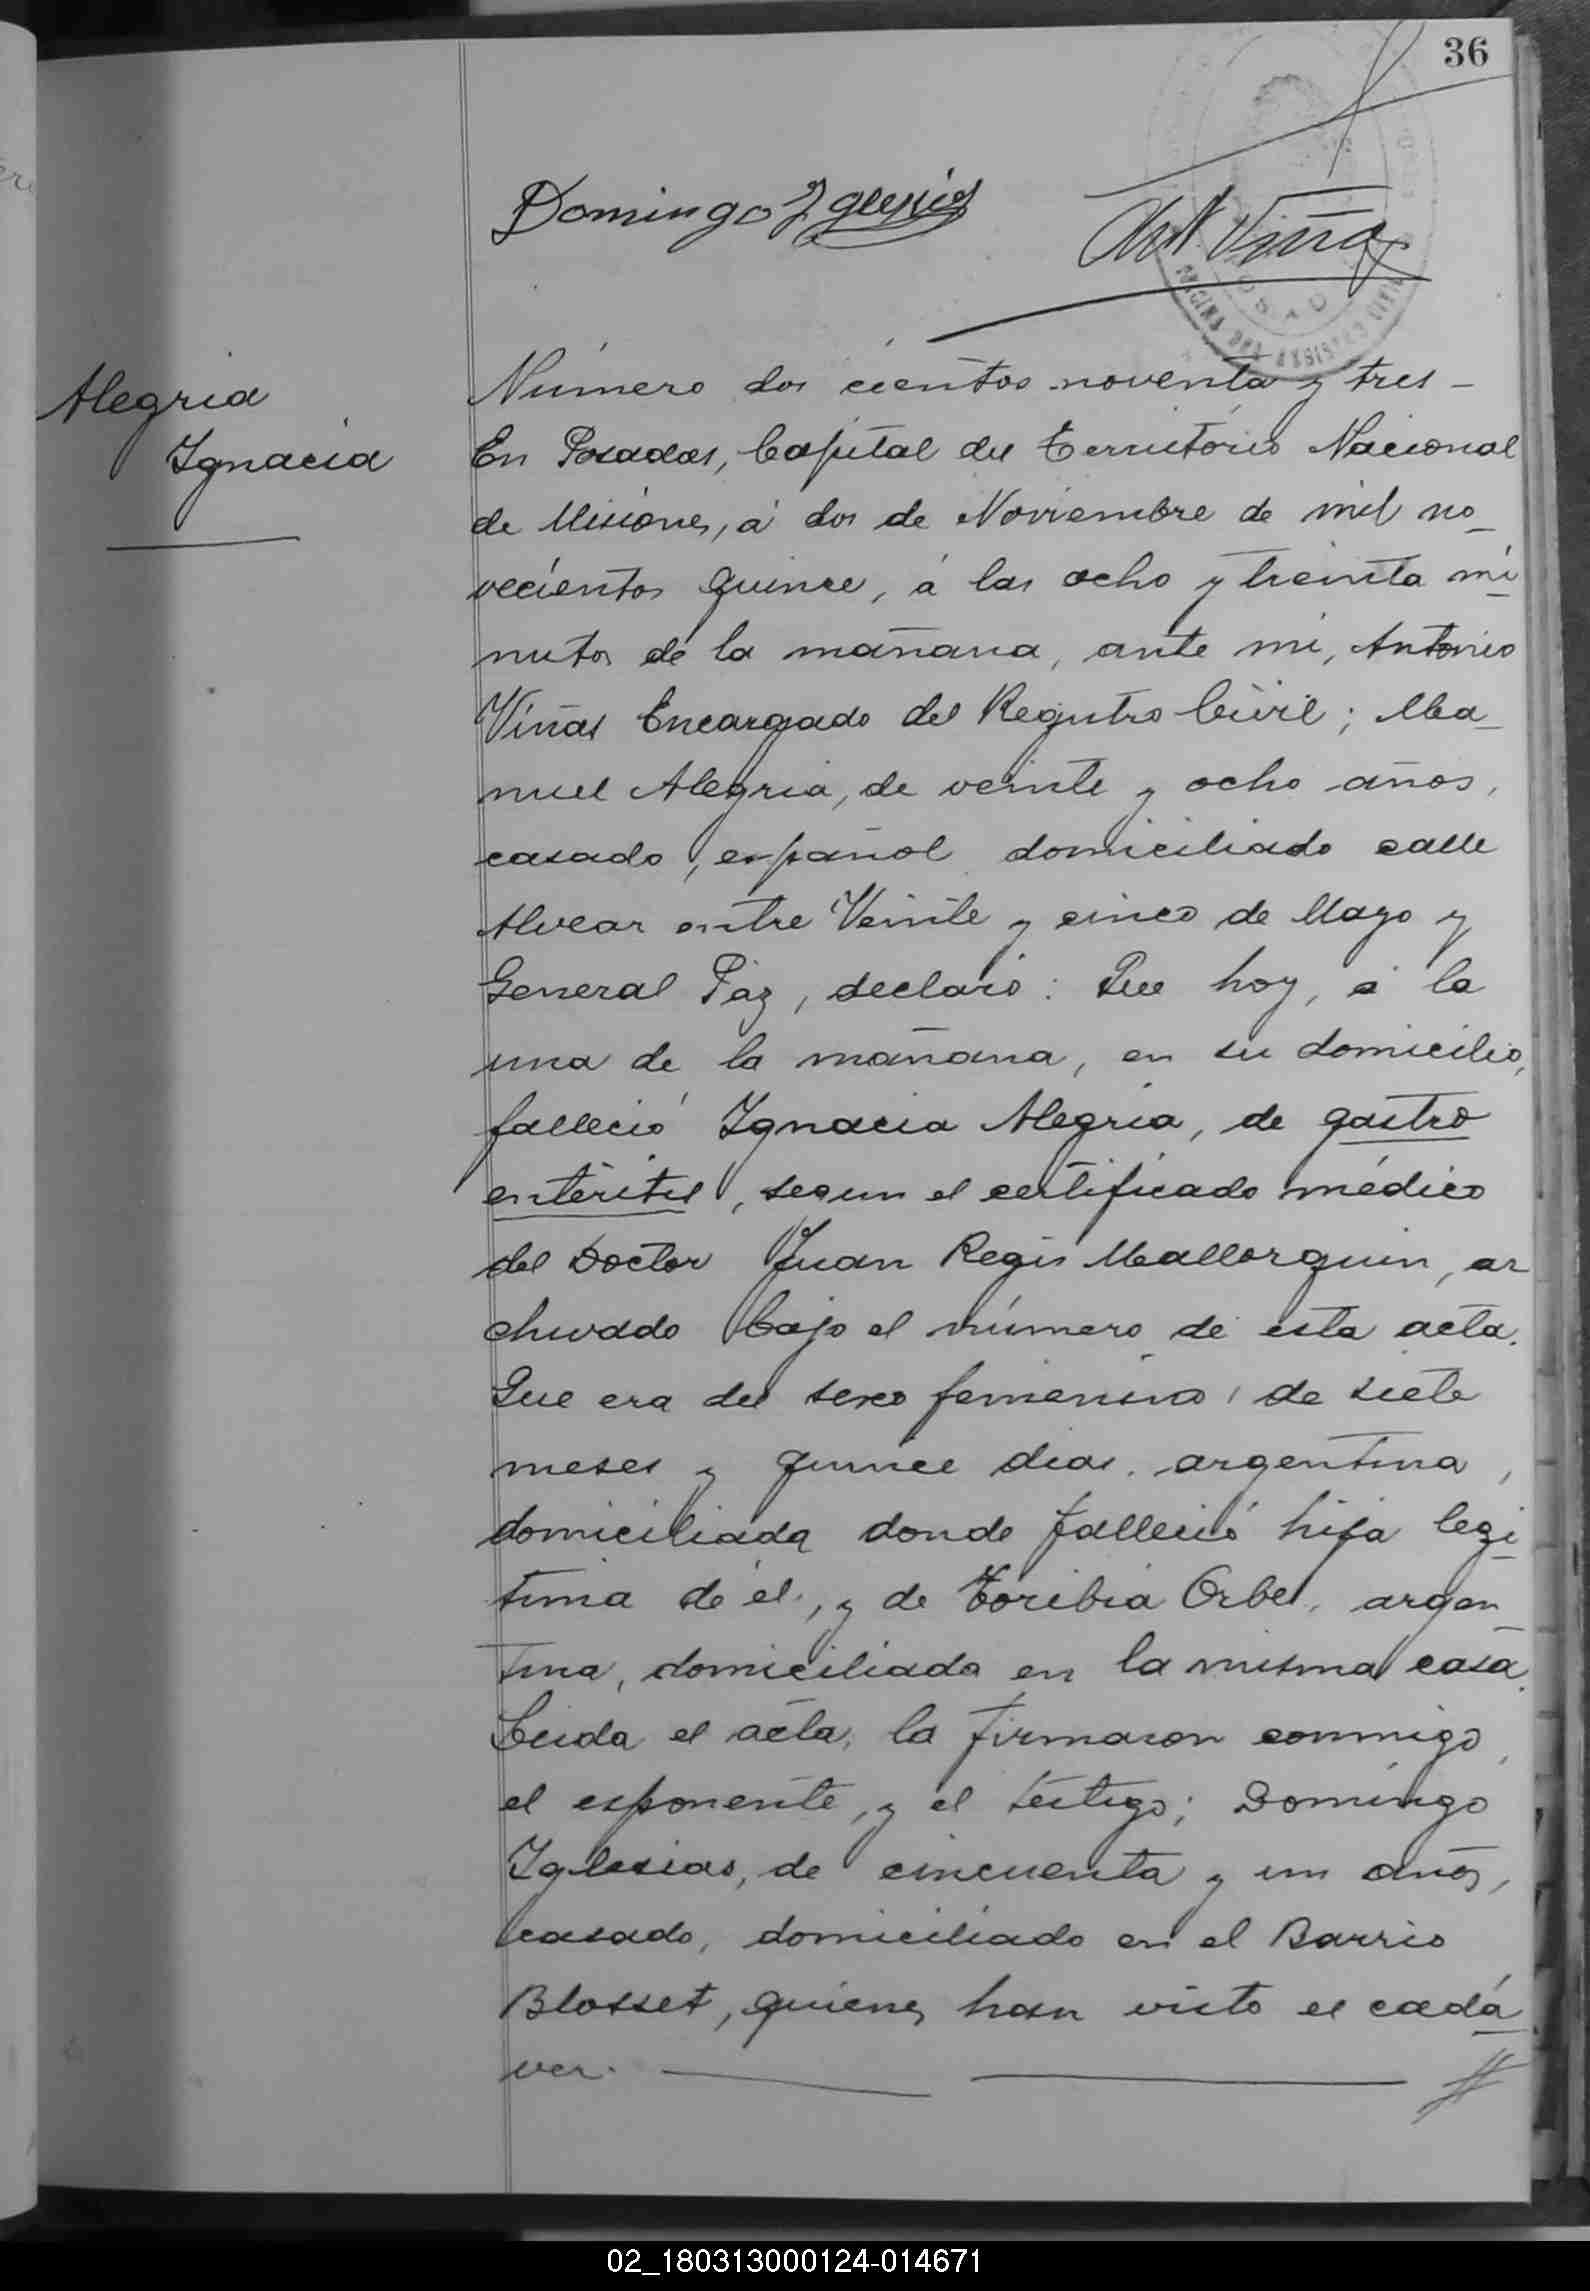 36
Domingo Iglesias
Ant Viñas
OFICINA DEL REGISTRO CIVIL
Alegria
Ignacia
Número dos cientos noventa y tres –
En Posadas, Capital del Territorio Nacional
de Misiones, á dos de Noviembre de mil no-
vecientos quince, á las ocho y treinta mi-
nutos de la mañana, ante mi, Antonio
Viñas Encargado del Registro Civil; Ma-
nuel Alegria, de veinte y ocho años,
casado, español domiciliado calle
Alvear entre Veinte y cinco de Mayo y
General Paz, declaró: Que hoy, á la
una de la mañana, en su domicilio,
falleció Ignacia Alegria, de gastro
enteritis, segun el certificado médico
del Doctor Juan Regis Mallorquin, ar
chivado bajo el número de esta acta.
Que era del sexo femenino, de siete
meses y quince dias, argentina,
domiciliada donde falleció hija legi-
tima de él, y de Toribia Orbe, argen
tina, domiciliada en la misma casa.
Leida el acta, la firmaron conmigo,
el esponente, y el testigo; Domingo
Iglesias, de cincuenta y un años,
casado, domiciliado en el Barrio
Blosset, quienes han visto el cadá-
ver.
02_180313000124-014671